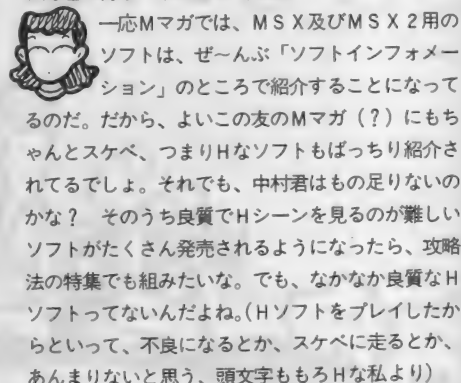 一応Mマガでは、MSX及びMSX2用の
ソフトは、ぜ〜んぶ「ソフトインフォメー
ション」のところで紹介することになって
るのだ。だから、よいこの友のMマガ（？）にもち
ゃんとスケベ、つまりHなソフトもばっちり紹介さ
れてるでしょ。それでも、中村君はもの足りないの
かな？　そのうち良質でHシーンを見るのが難しい
ソフトがたくさん発売されるようになったら、攻略
法の特集でも組みたいな。でも、なかなか良質なH
ソフトってないんだよね。（Hソフトをプレイしたか
らといって、不良になるとか、スケベに走るとか、
あんまりないと思う、頭文字ももろHな私より）